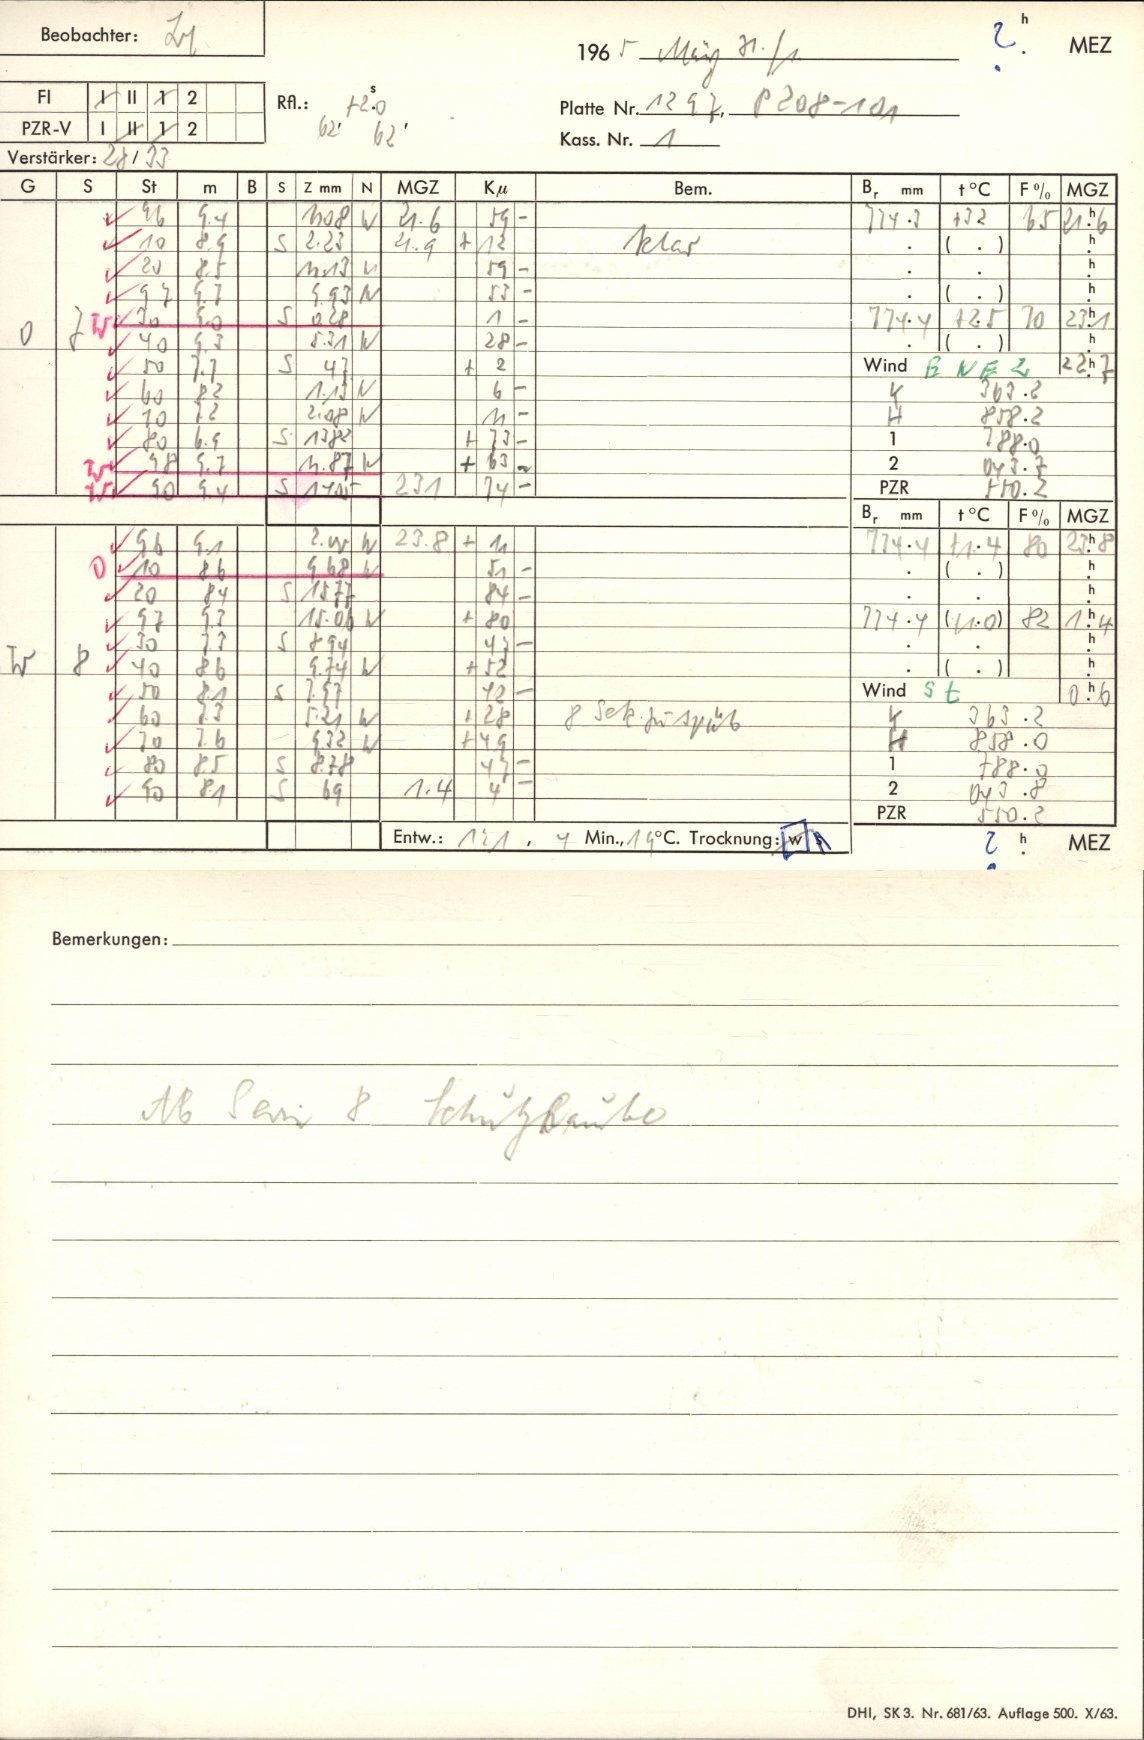 Beobachter:
h
? . MEZ
196 5 März 31./1
FI I II 1 2
Rfl.: +2.0 s
62' 62'
Platte Nr. 1297, P208-101
PZR-V I II 1 2
Kass. Nr. 1
Verstärker: 28/33
G S St m B S Z mm N MGZ Kμ Bem. Br mm t°C F% MGZ
96 9.4 11.08 W 21.6 59 - 774.3 +3.2 65 21.6 h
10 8.9 S 2.23 21.9 + 12 klar . ( . ) h
20 8.5 11.13 W 59 - . . h
97 9.7 9.93 W 53 - . ( . ) h
O 7 W 30 9.0 S 0.28 1 - 774.4 +2.5 70 23.1 h
40 9.3 5.31 W 28 - . ( . ) h
50 7.7 S 47 + 2 Wind E N E 2 22.7 h
60 8.2 1.13 W 6 - K 363.2
70 7.2 2.08 W 11 - H 858.2
80 6.9 S 1382 + 73 - 1 788.0
W 98 9.7 11.87 W + 63 - 2 043.7
W 90 9.4 S 231 74 - PZR 550.2
Br mm t°C F% MGZ
96 9.1 W 23.8 + 11 774.4 +1.4 80 23.8 h
O 10 8.6 9.68 W 51 - . ( . ) h
20 8.4 S 15.77 84 - . . h
97 9.7 15.06 W + 80 774.4 (+1.0) 82 1.4 h
30 7.3 S 8.94 47 - . . h
W 8 40 8.6 9.74 W + 52 . ( . ) h
50 8.1 S 7.97 42 - Wind St 0.6 h
60 5.21 W + 28 8 Sek. zu spät K 363.2
70 7.6 9.32 W + 49 H 858.0
80 8.5 S 8.78 47 - 1 788.0
90 8.1 S 69 1.4 4 - 2 043.8
PZR 550.2
Entw.: 1:1, 4 Min., 19°C. Trocknung: w s ? . h MEZ
Bemerkungen:
Ab Serie 8 Schutzhaube
DHI, SK 3. Nr. 681/63. Auflage 500. X/63.